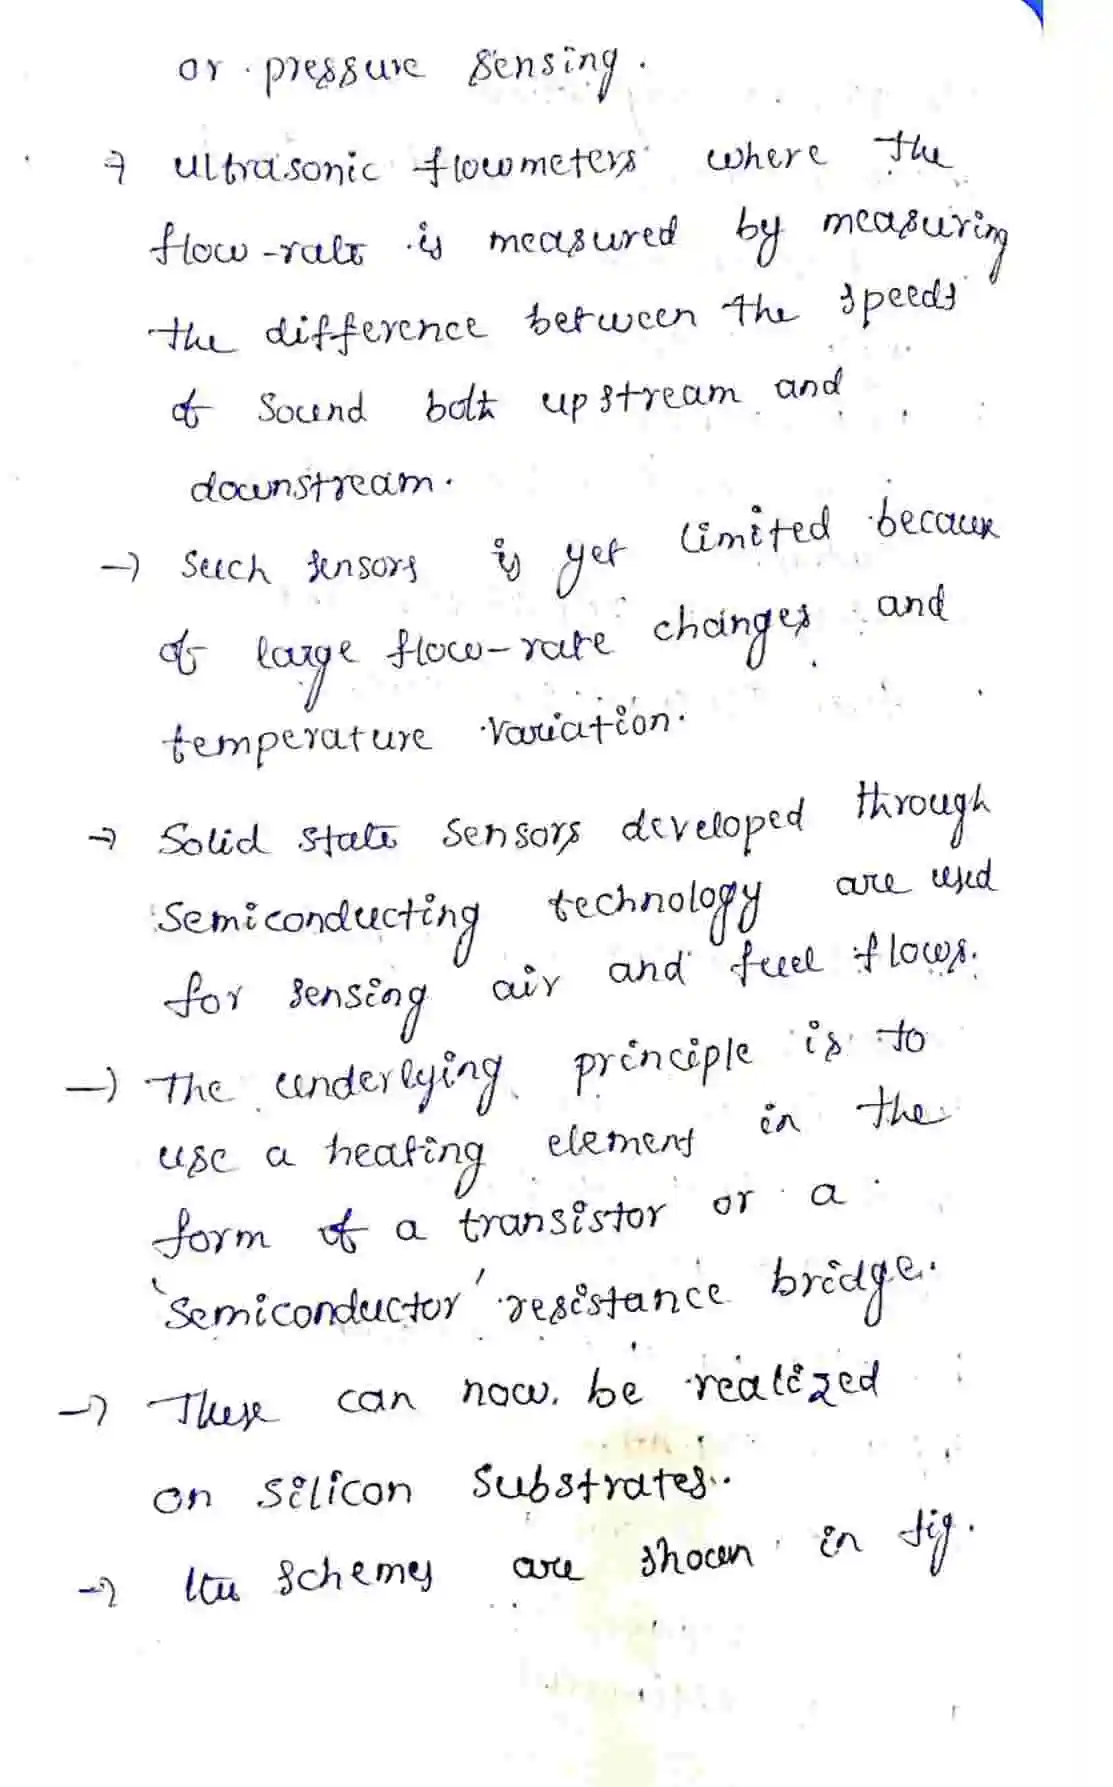 or pressure sensing.
→ ultrasonic flowmeters where the
flow-rate is measured by measuring
the difference between the speeds
of sound both upstream and
downstream.
→ such sensors is yet limited because
of large flow-rate changes and
temperature variation.
→ Solid state sensors developed through
semiconducting technology are used
for sensing air and fuel flows.
→ The underlying principle is to
use a heating element in the
form of a transistor or a
'semiconductor' resistance bridge.
→ These can now be realized
on silicon substrates.
→ schemes are shown in fig.